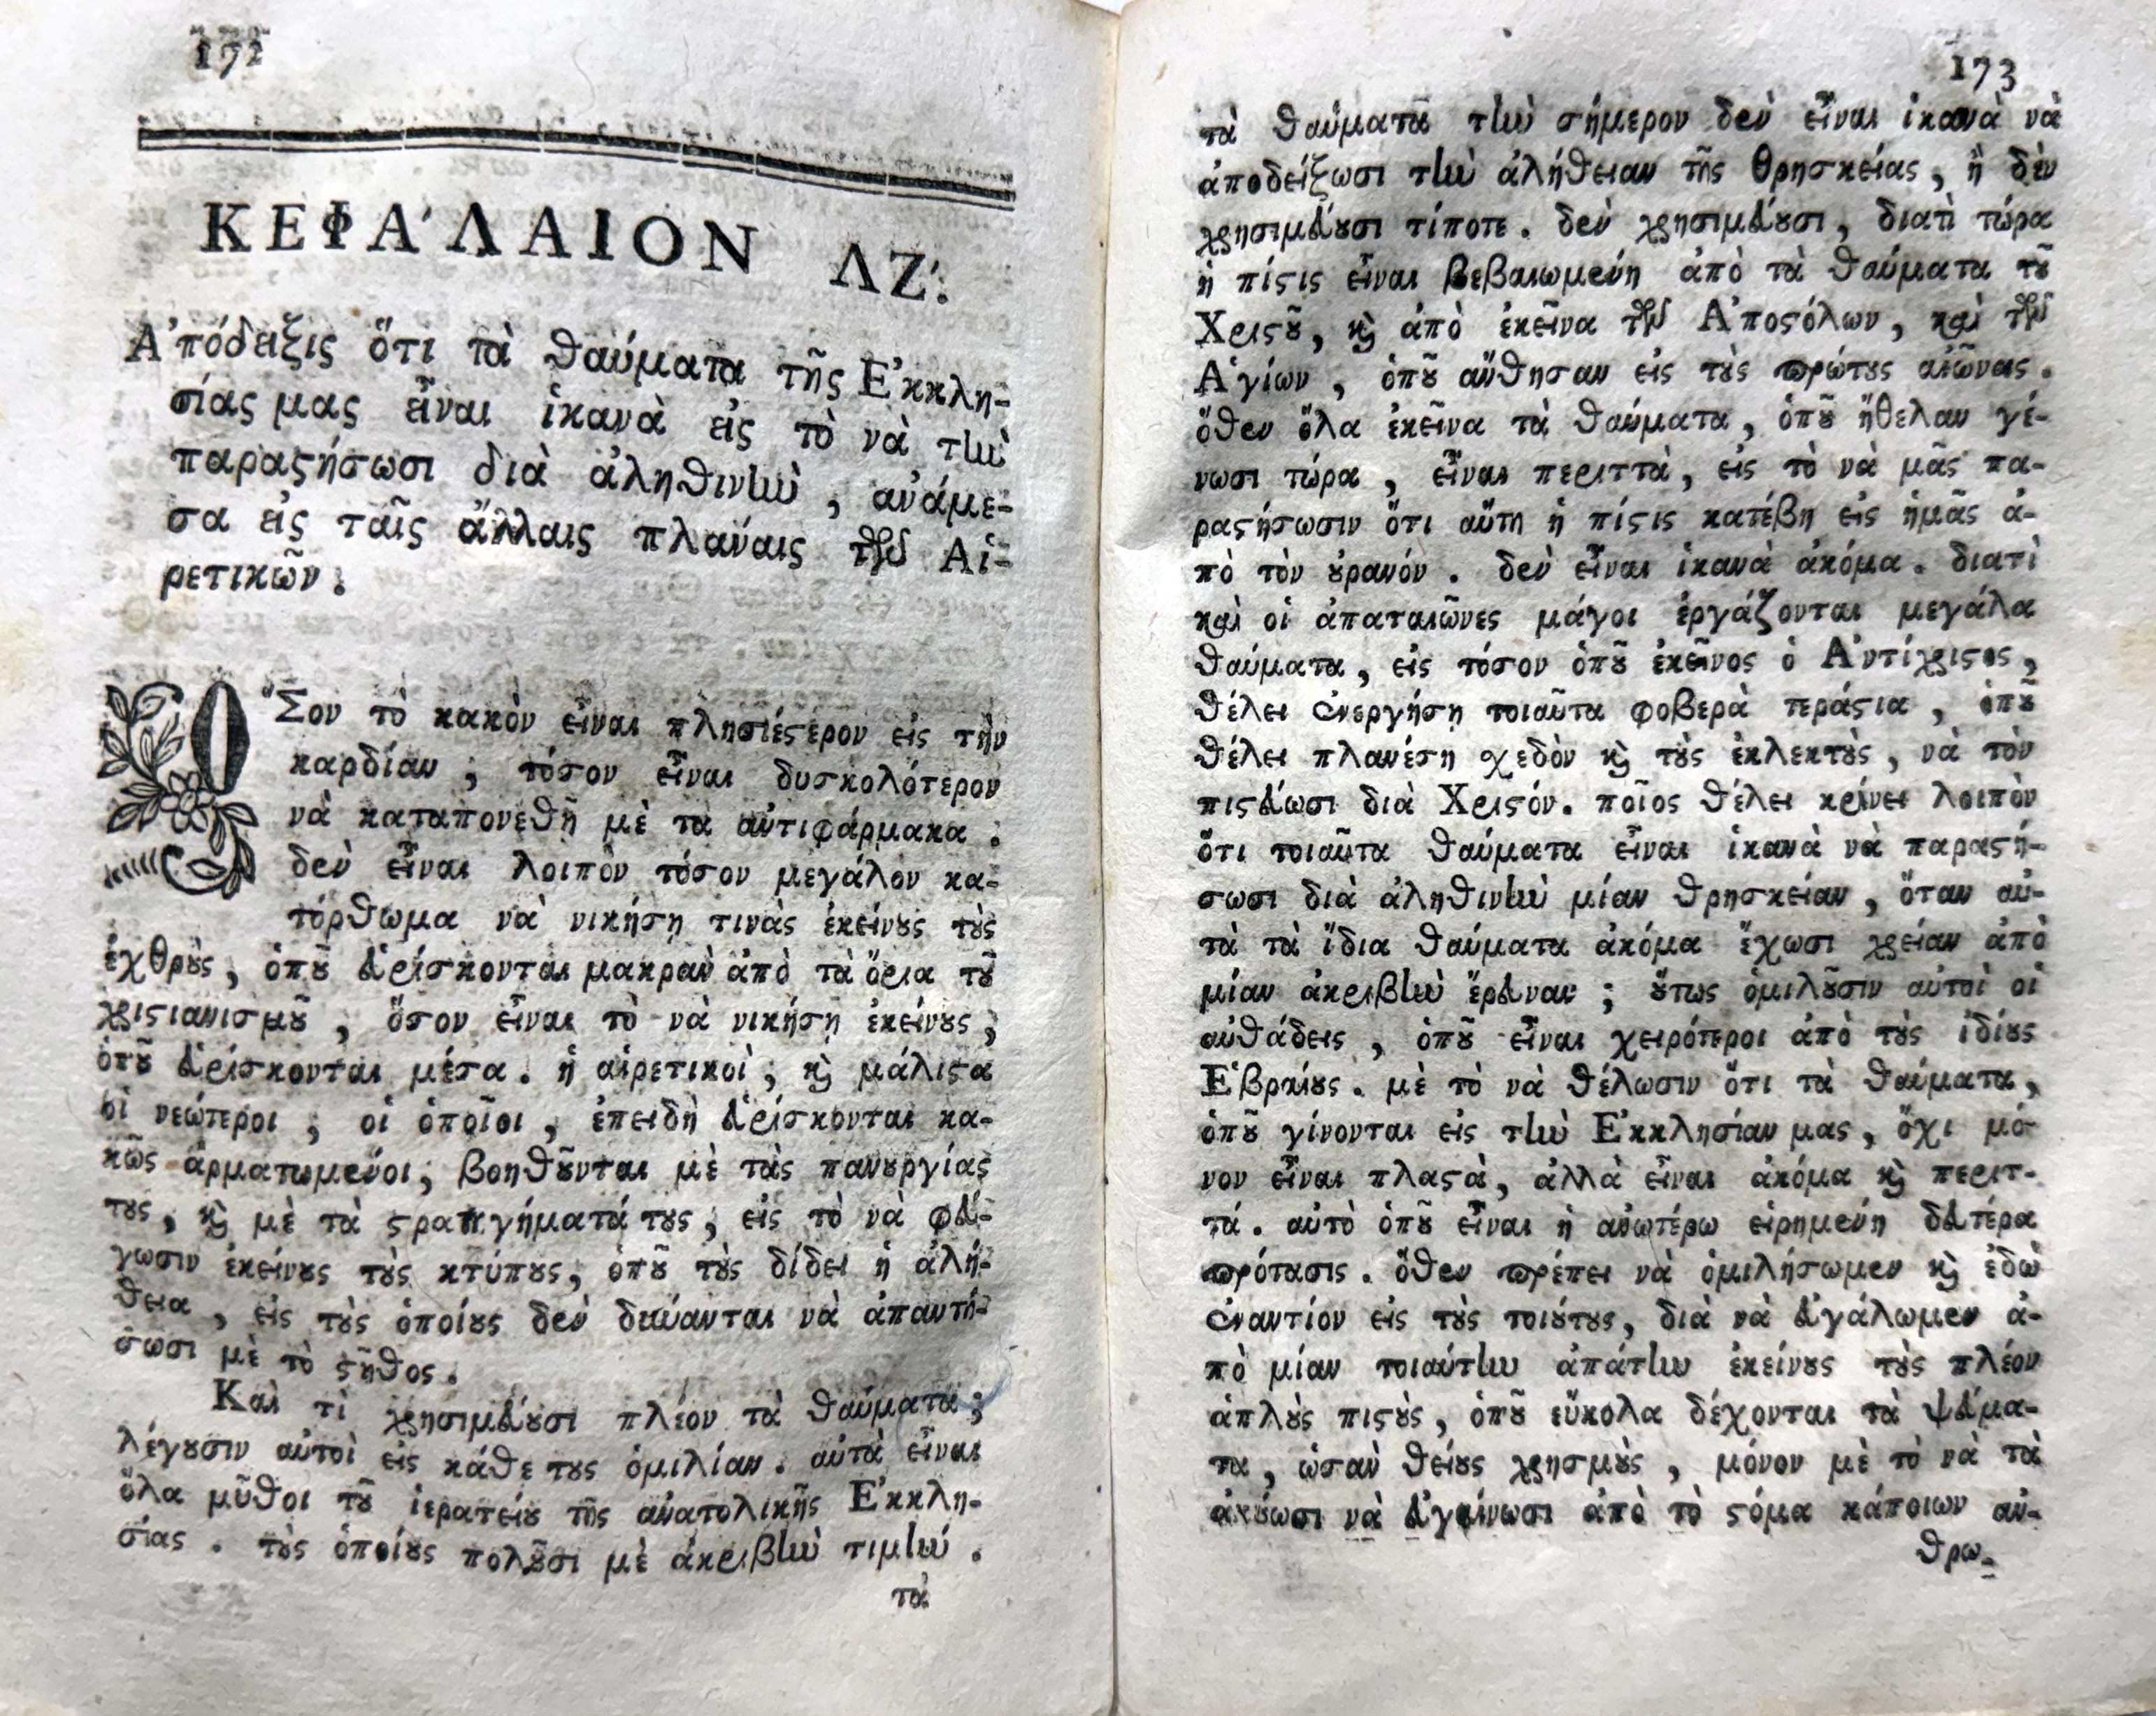 172
ΚΕΦΑ'ΛΑΙΟΝ ΛΖ'.
Α'πόδειξις ὅτι τὰ θαύματα τῆς Ε'κκλη-
σίας μας εἶναι ἱκανὰ εἰς τὸ νὰ τὴν
παραϛήσωσι διὰ ἀληθινὴν, ἀνάμε-
σα εἰς ταῖς ἄλλαις πλάναις τῶν Αἱ-
ρετικῶν.
Ο"Σον τὸ κακὸν εἶναι πλησιέϛερον εἰς τὴν
καρδίαν, τόσον εἶναι δυσκολότερον
νὰ καταπονεθῇ μὲ τὰ ἀντιφάρμακα.
δὲν εἶναι λοιπὸν τόσον μεγάλον κα-
τόρθωμα νὰ νικήσῃ τινὰς ἐκείνȣς τὸς
ἐχθρȣ̀ς, ὁπȣ̃ εὑρίσκονται μακρὰν ἀπὸ τὰ ὅρια τȣ̃
χριϛιανισμȣ̃, ὅσον εἶναι τὸ νὰ νικήσῃ ἐκείνȣς,
ὁπȣ̃ εὑρίσκονται μέσα. ἡ αἱρετικοὶ, ϗ̀ μάλιϛα
οἱ νεώτεροι, οἱ ὁποῖοι, ἐπειδὴ εὑρίσκονται κα-
κῶς ἁρματωμένοι, βοηθȣ̃νται μὲ τὰς πανȣργίας
τȣς, ϗ̀ μὲ τὰ ϛρατηγήματά τȣς, εἰς τὸ νὰ φεύ-
γωσιν ἐκείνȣς τȣ̀ς κτύπȣς, ὁπȣ̃ τȣ̀ς δίδει ἡ ἀλή-
θεια, εἰς τȣ̀ς ὁποίȣς δὲν δύνανται νὰ ἀπαντή-
σωσι μὲ τὸ ϛῆθος.
Καὶ τί χρησιμεύȣσι πλέον τὰ θαύματα;
λέγȣσιν αὐτοὶ εἰς κάθε τȣς ὁμιλίαν. αὐτὰ εἶναι
ὅλα μῦθοι τȣ̃ ἱερατείȣ τῆς ἀνατολικῆς Ε'κκλη-
σίας. τȣ̀ς ὁποίȣς πολȣ̃σι μὲ ἀκριβὴν τιμήν.
τὰ
173
τὰ θαύματα τὴν σήμερον δὲν εἶναι ἱκανὰ νὰ
ἀποδείξωσι τὴν ἀλήθειαν τῆς θρησκείας, ἢ δὲν
χρησιμεύȣσι τίποτε. δὲν χρησιμεύȣσι, διατὶ τώρα
ἡ πίϛις εἶναι βεβαιωμένη ἀπὸ τὰ θαύματα τȣ̃
Χριϛȣ̃, ϗ̀ ἀπὸ ἐκεῖνα τῶν Α'ποϛόλων, καὶ τῶν
Α'γίων, ὁπȣ̃ ἄνθησαν εἰς τȣ̀ς πρώτȣς αἰῶνας.
ὅθεν ὅλα ἐκεῖνα τὰ θαύματα, ὁπȣ̃ ἤθελαν γέ-
νωσι τώρα, εἶναι περιττὰ, εἰς τὸ νὰ μᾶς πα-
ραϛήσωσιν ὅτι αὕτη ἡ πίϛις κατέβη εἰς ἡμᾶς ἀ-
πὸ τὸν ȣ̓ρανόν. δὲν εἶναι ἱκανὰ ἀκόμα. διατὶ
καὶ οἱ ἀπαταιῶνες μάγοι ἐργάζονται μεγάλα
θαύματα, εἰς τόσον ὁπȣ̃ ἐκεῖνος ὁ Α'ντίχριϛος,
θέλει ἐνεργήσῃ τοιαῦτα φοβερὰ τεράϛια, ὁπȣ̃
θέλει πλανέσῃ χεδὸν ϗ̀ τȣ̀ς ἐκλεκτȣ̀ς, νὰ τὸν
πιϛεύωσι διὰ Χριϛόν. ποῖος θέλει κρίνει λοιπὸν
ὅτι τοιαῦτα θαύματα εἶναι ἱκανὰ νὰ παραϛή-
σωσι διὰ ἀληθινὴν μίαν θρησκείαν, ὅταν αὐ-
τὰ τὰ ἴδια θαύματα ἀκόμα ἔχωσι χρείαν ἀπὸ
μίαν ἀκριβὴν ἔρευναν; ȣ̔́τως ὁμιλȣ̃σιν αὐτοὶ οἱ
αὐθάδεις, ὁπȣ̃ εἶναι χειρότεροι ἀπὸ τȣ̀ς ἰδίȣς
Ε'βραίȣς. μὲ τὸ νὰ θέλωσιν ὅτι τὰ θαύματα,
ὁπȣ̃ γίνονται εἰς τὴν Ε'κκλησίαν μας, ὄχι μό-
νον εἶναι πλαϛὰ, ἀλλὰ εἶναι ἀκόμα ϗ̀ περιτ-
τά. αὐτὸ ὁπȣ̃ εἶναι ἡ ἀνωτέρω εἰρημένη δευτέρα
πρότασις. ὅθεν πρέπει νὰ ὁμιλήσωμεν ϗ̀ ἐδῶ
ἐναντίον εἰς τȣ̀ς τοιȣ́τȣς, διὰ νὰ εὐγάλωμεν ἀ-
πὸ μίαν τοιαύτην ἀπάτην ἐκείνȣς τȣ̀ς πλέον
ἁπλȣ̀ς πιϛȣ̀ς, ὁπȣ̃ εὔκολα δέχονται τὰ ψεύμα-
τα, ὡσὰν θείȣς χρησμȣ̀ς, μόνον μὲ τὸ νὰ τὰ
ἀκȣ́ωσι νὰ εὐγαίνωσι ἀπὸ τὸ ϛόμα κάποιων ἀν-
θρω-